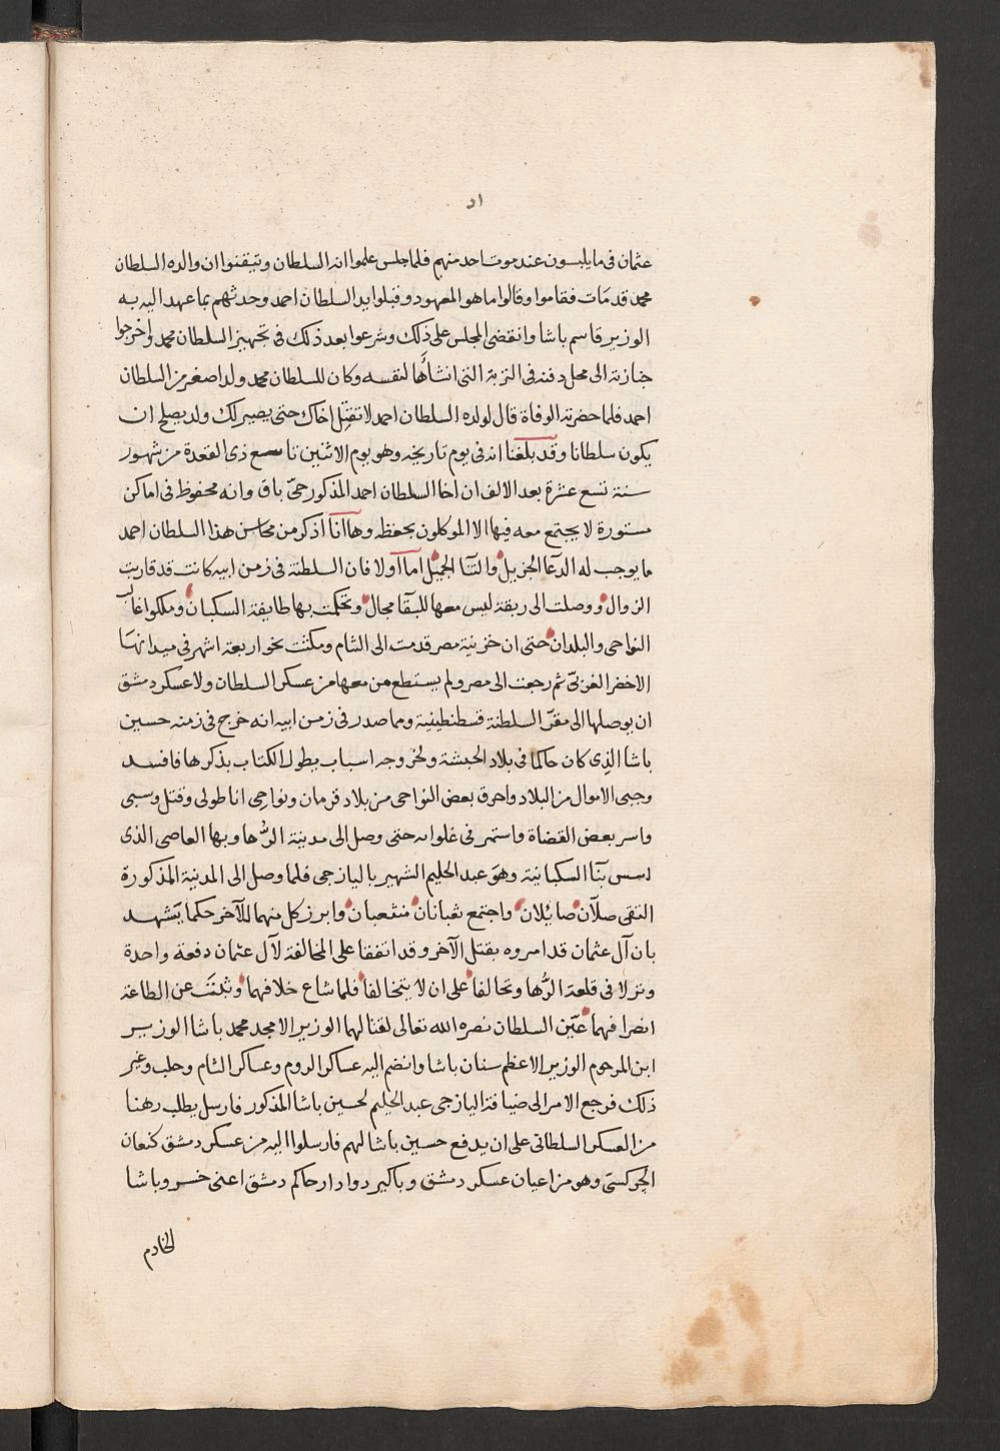 اد
عثمان فى ما يلبسون عند موت احد منهم فلما جلس علموا انه السلطان وتيقنوا ان والده السلطان
محمد قد مات فقاموا وقالوا ما هو المعهود وقبلوا يد السلطان احمد وحدثهم بما عهد اليه به
الوزير قاسم باشا وانقضى المجلس على ذلك وشرعوا بعد ذلك فى تجهيز السلطان محمد واخرجوا
جنازته الى محل دفنه فى التربة التى انشأها لنفسه وكان للسلطان محمد ولد اصغر من السلطان
احمد فلما حضرته الوفاة قال لولده السلطان احمد لا تقتل اخاك حتى يصير لك ولد يصلح ان
يكون سلطانا وقد بلغنا انه فى يوم تاريخه وهو يوم الاثنين تاسع ذى القعدة من شهور
سنة تسع عشرة بعد الالف ان اخا السلطان احمد المذكور حىّ باق وانه محفوظ فى اماكن
مستورة لا يجتمع معه فيها الا الموكلون بحفظه وها انا اذكر من محاسن هذا السلطان احمد
ما يوجب له الدعا الجزيل والثنا الجميل اما اولا فان السلطنة فى زمن ابيه كانت قد قاربت
الزوال ووصلت الى ربقة ليس معها للبقا مجال وتحكمت بها طايفة السكبان وملكوا غالب
النواحى والبلدان حتى ان خزينة مصر قدمت الى الشام ومكثت نحو اربعة اشهر فى ميدانها
الاخضر الغربىّ ثم رجعت الى مصر ولم يستطع من معها من عسكر السلطان ولا عسكر دمشق
ان يوصلها الى مقرّ السلطنة قسطنطينية ومما صدر فى زمن ابيه انه خرج فى زمنه حسين
باشا الذى كان حاكما فى بلاد الحبشة ولخروجه اسباب يطول الكتاب بذكرها فافسد
وجبى الاموال من البلاد واحرق بعض النواحى من بلاد قرمان ونواحى اناطولى وقتل وسبى
واسر بعض القضاة واستمر فى غلوائه حتى وصل الى مدينة الرُّها وبها العاصى الذى
اسس بنّا السكبانية وهو عبد الحليم الشهير باليازجى فلما وصل الى المدينة المذكورة
التقى صلّان صايلان واجتمع ثعبانان منثعبان وابرز كل منهما للآخر حكما يشهد
بان آل عثمان قد امروه بقتل الآخر وقد اتفقا على المخالفة لآل عثمان دفعة واحدة
ونزلا فى قلعة الرُّها وتحالفا على ان لا يتخالفا فلما شاع خلافهما وثبت عن الطاعة
انصرافهما عيّن السلطان نصره الله تعالى لقتالهما الوزير الامجد محمد باشا الوزير
ابن المرحوم الوزير الاعظم سنان باشا وانضم اليه عساكر الروم وعساكر الشام وحلب وغير
ذلك فرجع الامر الى ضيافة اليازجى عبد الحليم لحسين باشا المذكور فارسل يطلب رهنا
من العسكر السلطانى على ان يدفع حسين باشا لهم فارسلوا اليه من عسكر دمشق كنعان
الچركسىّ وهو من اعيان عسكر دمشق وباكير دوادار حاكم دمشق اعنى خسرو باشا
الخادم